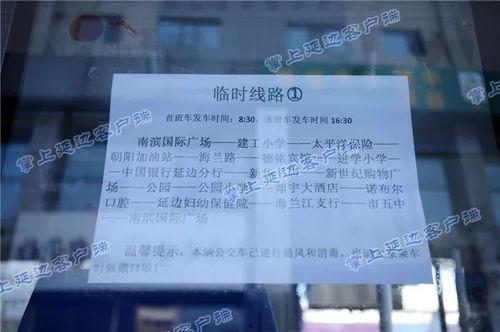 临时线路①
首班车发车时间：8:30，末班车发车时间 16:30
南滨国际广场——建工小学——太平洋保险——
朝阳加油站——海兰路——德铭宾馆——延学小学—
—中国银行延边分行——新——新世纪购物广
场——公园——公园小学——翔宇大酒店——诺布尔
口腔——延边妇幼保健院——海兰江支行——市五中
——南滨国际广场
温馨提示：本辆公交车已进行通风和消毒，乘车
时佩戴口罩！
掌上延边客户端
掌上延边客户端
掌上延边客户端
掌上延边客户端
掌上延边客户端
掌上延边客户端